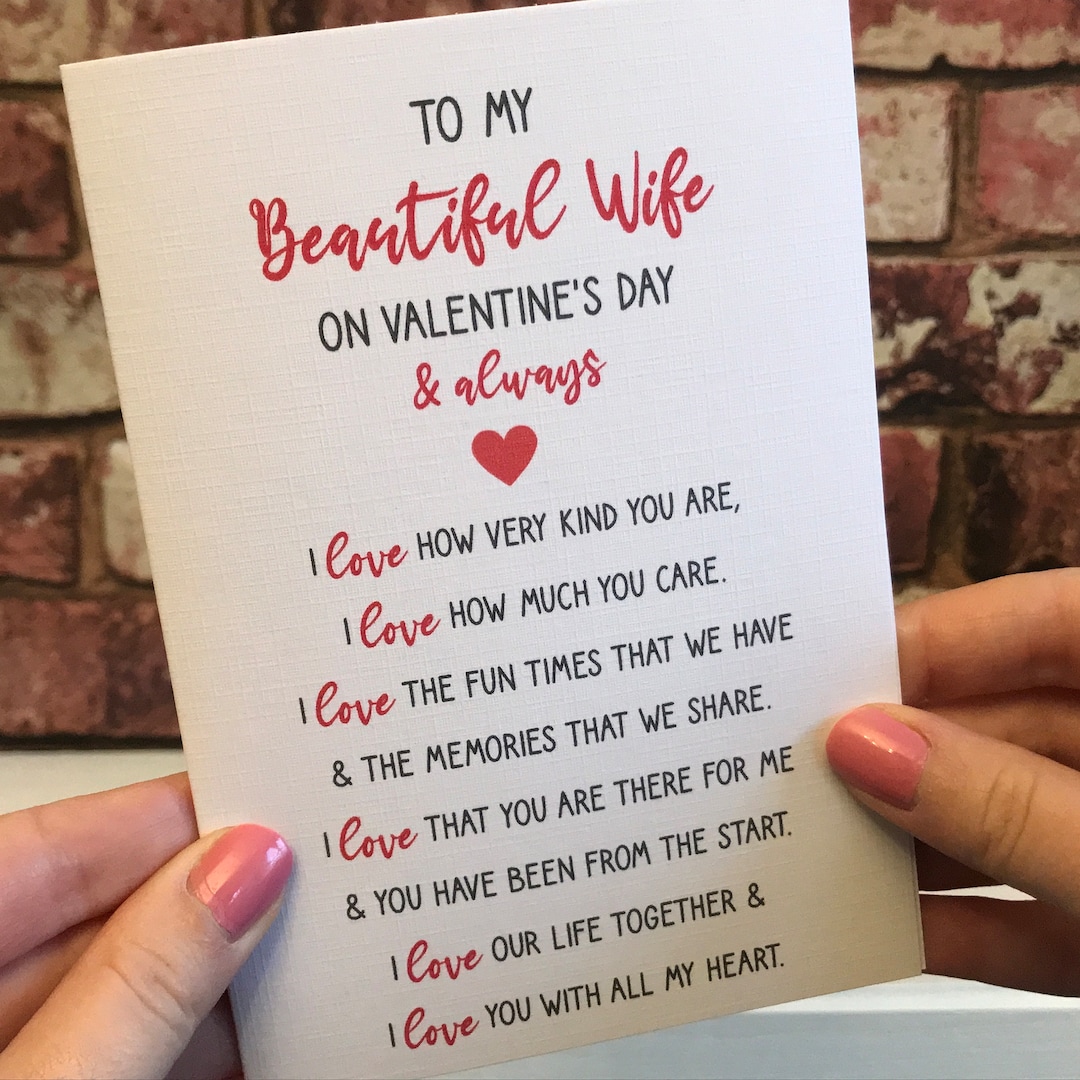 TO MY
Beautiful Wife
ON VALENTINE'S DAY
& always
I love HOW VERY KIND YOU ARE,
I love HOW MUCH YOU CARE.
I love THE FUN TIMES THAT WE HAVE
& THE MEMORIES THAT WE SHARE.
I love THAT YOU ARE THERE FOR ME
& YOU HAVE BEEN FROM THE START.
I love OUR LIFE TOGETHER &
I love YOU WITH ALL MY HEART.